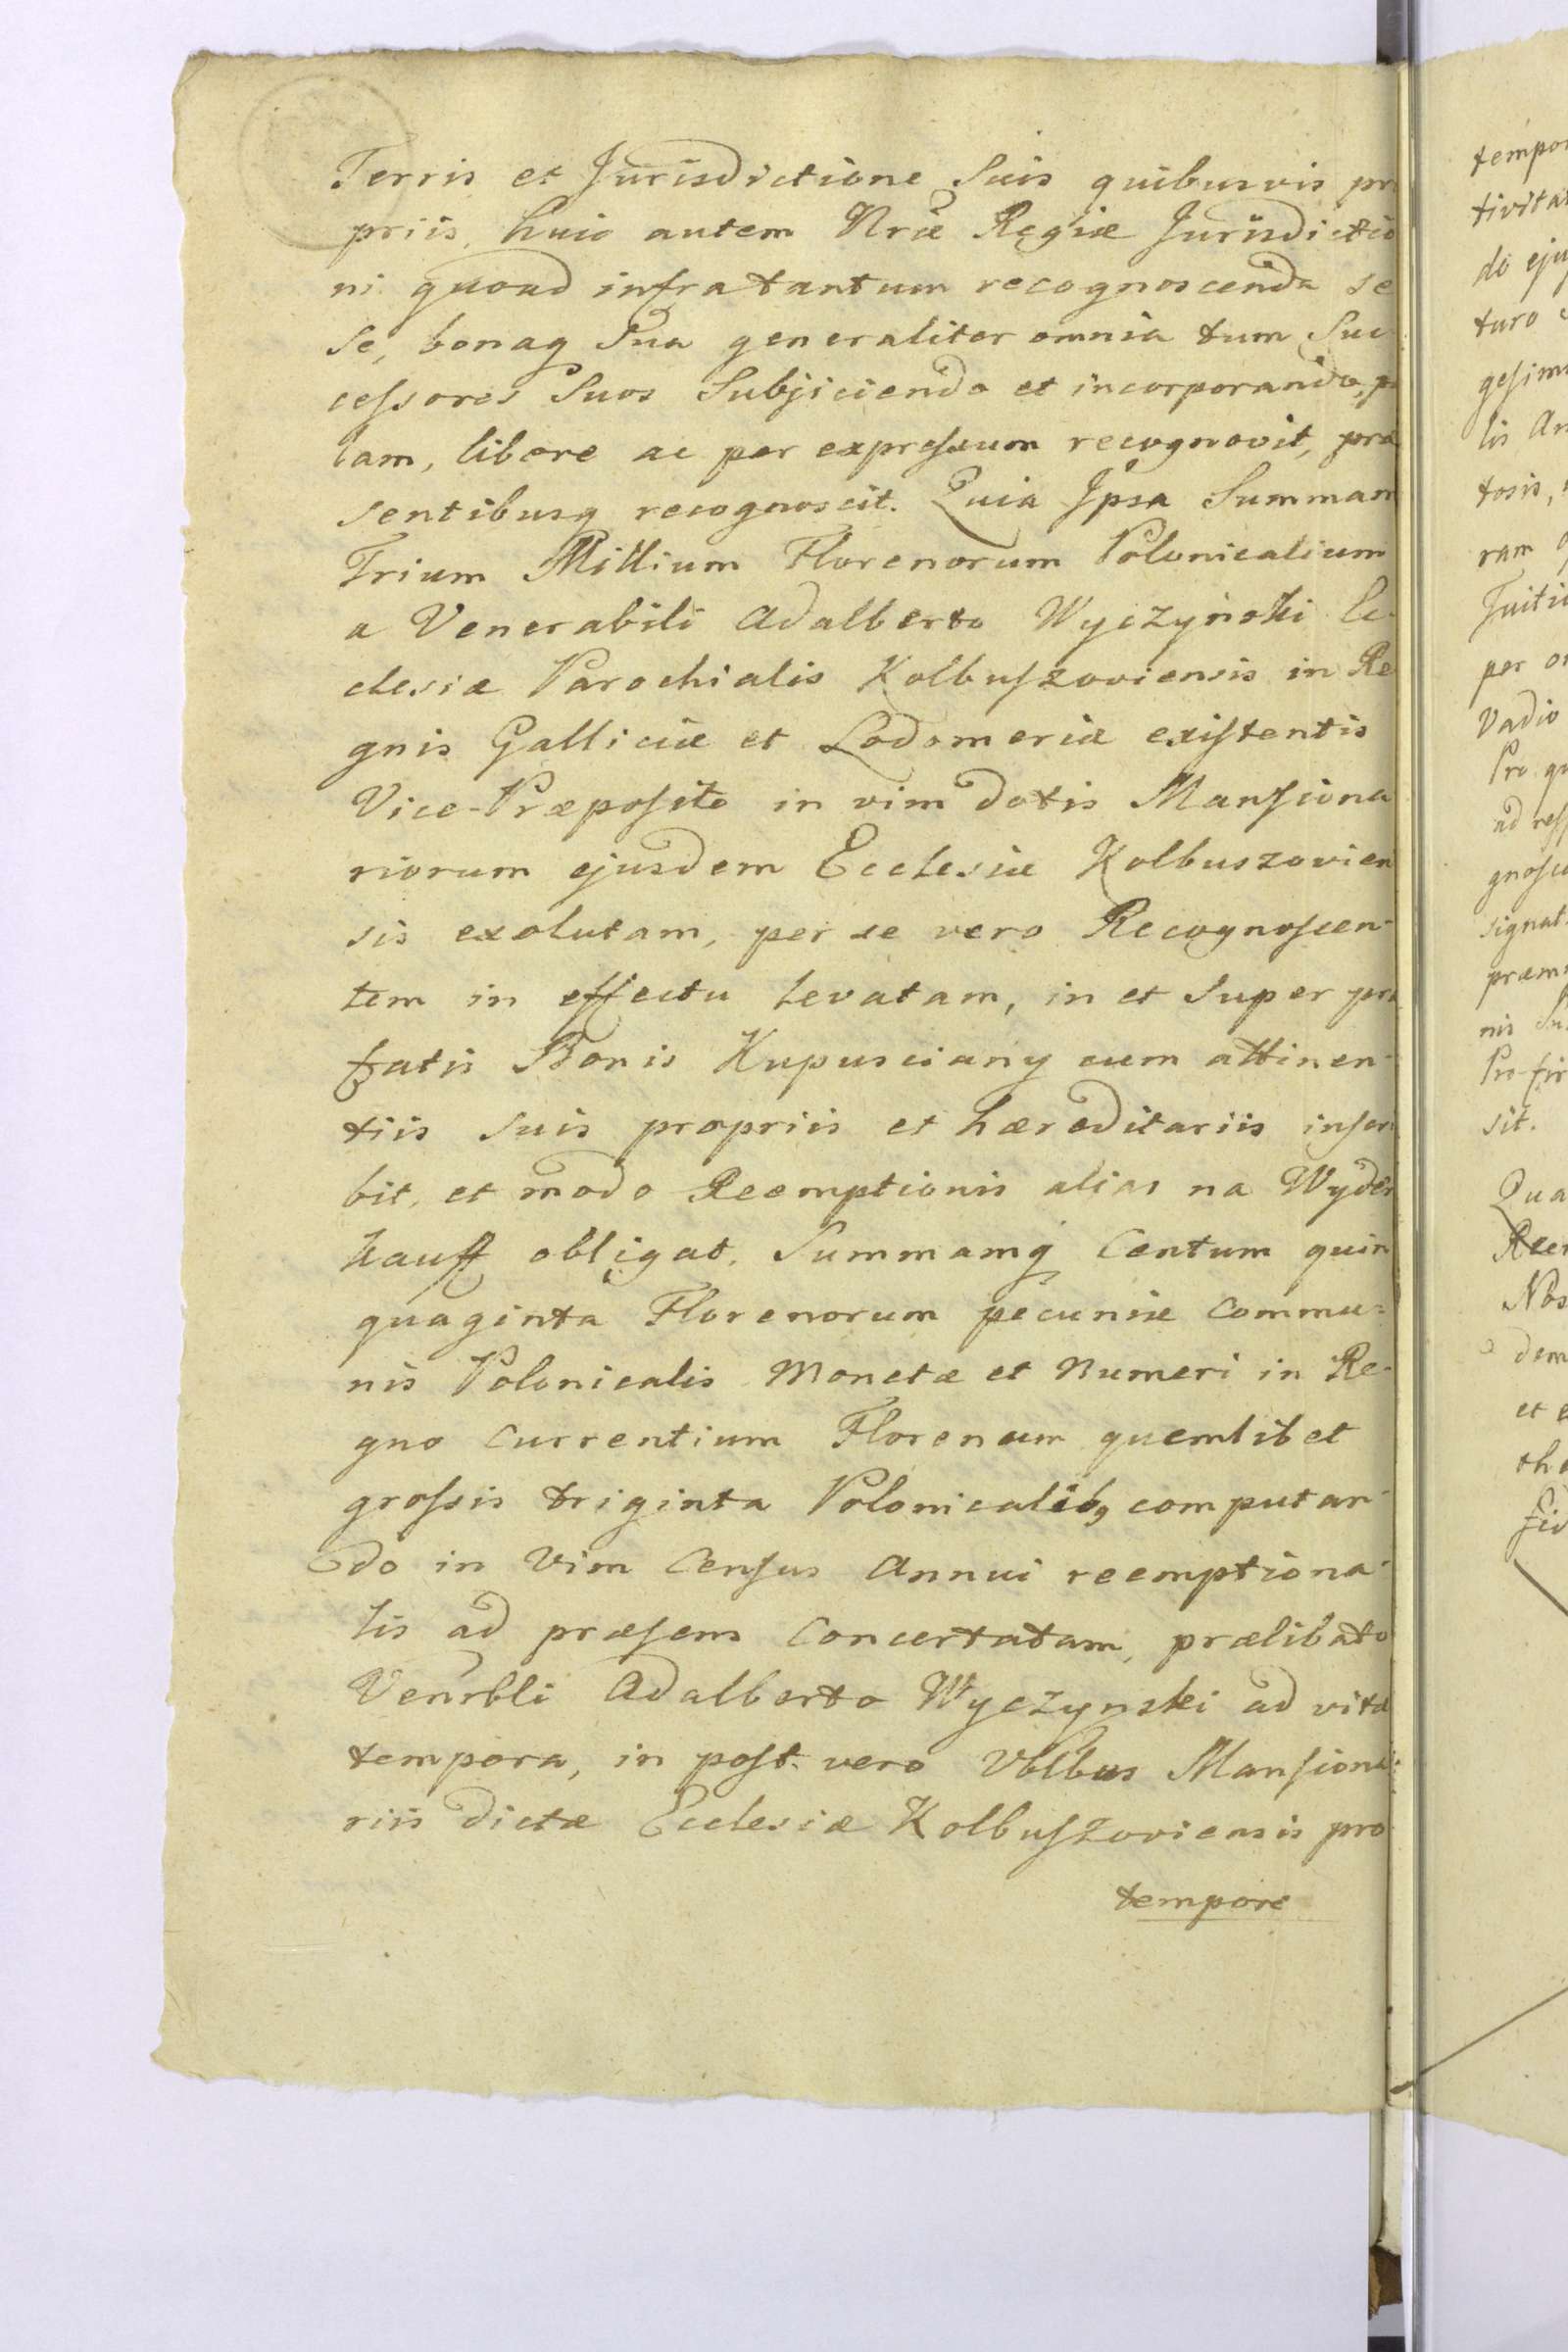 Terris et Jurisdictione Suis quibusvis pr
priis, huic autem Nræ Regiæ Jurisdictio
ni quoad infra tantum recognoscenda se
se, bonaq Sua generaliter omnia tum Suc
cessores Suos Subjiciendo et incorporando, p
lam, libere ac per expressum recognovit, præ
sentibusq recognoscit. Quia Ipsa Summam
Trium Millium Florenorum Polonicalium
a Venerabili Adalberto Wyczyński Ec-
clesiæ Parochialis Kolbuszoviensis in Re
gnis Galliciæ et Lodomeriæ existentis
Vice-Præposito in vim dotis Mansiona
riorum ejusdem Ecclesiæ Kolbuszovien
sis exolutam, per se vero Recognoscen-
tem in effectu levatam, in et Super præ
fatis Bonis Kupusciany cum attinen-
tiis suis propriis et hæreditariis inscri
bit, et modo Reemptionis alias na Wyder
kauff obligat. Summamq Centum quin
quaginta Florenorum pecuniæ Commu=
nis Polonicalis Monetæ et Numeri in Re-
gno Currentium Florenum quemlibet
grossis triginta Polonicalibq computan-
do in Vim Census Annui reemptiona-
lis ad præsens Concertatam, prælibato
Venrbli Adalberto Wyczynski ad vitæ
tempora, in post vero Vblbus Mansiona
riis dictæ Ecclesiæ Kolbuszoviensis pro
tempore
tempor
tivitat
do eju
turo
gesim
lis An
tosis,
ram
Tuitio
per o
Vadio
Pro qu
ad res
gnosc
signat
præm
nis Su
Pro fir
sit.
Qua
Rec
Nos
dem
et e
tho
fid